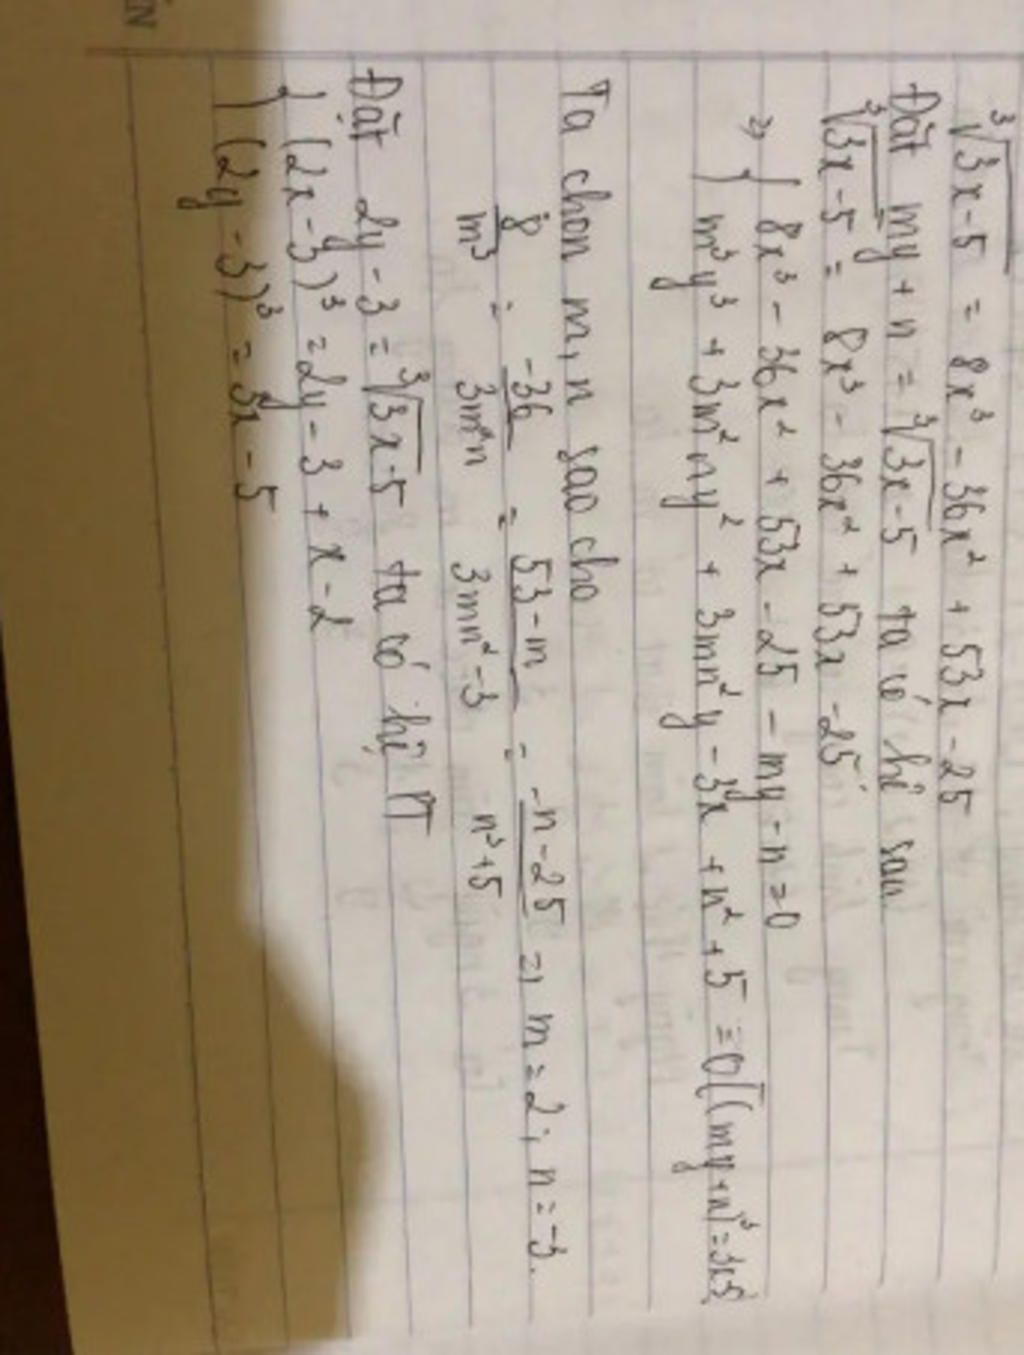 ∛(3x-5) = 8x³ - 36x² + 53x - 25
Đặt my + n = ∛(3x-5) ta có hệ sau
∛(3x-5) = 8x³ - 36x² + 53x - 25
=> { 8x³ - 36x² + 53x - 25 - my - n = 0
m³y³ + 3m²ny² + 3mn²y - 3x + n² + 5 = 0 [(my+n)³ = 3x-5]
Ta chọn m, n sao cho
8/m³ = -36/3m²n = 53-m/3mn²-3 = -n-25/n³+5 => m = 2; n = -3.
Đặt 2y - 3 = ∛(3x-5) ta có hệ PT
{ (2x-3)³ = 2y - 3 + x - 2
(2y-3)³ = 3x - 5